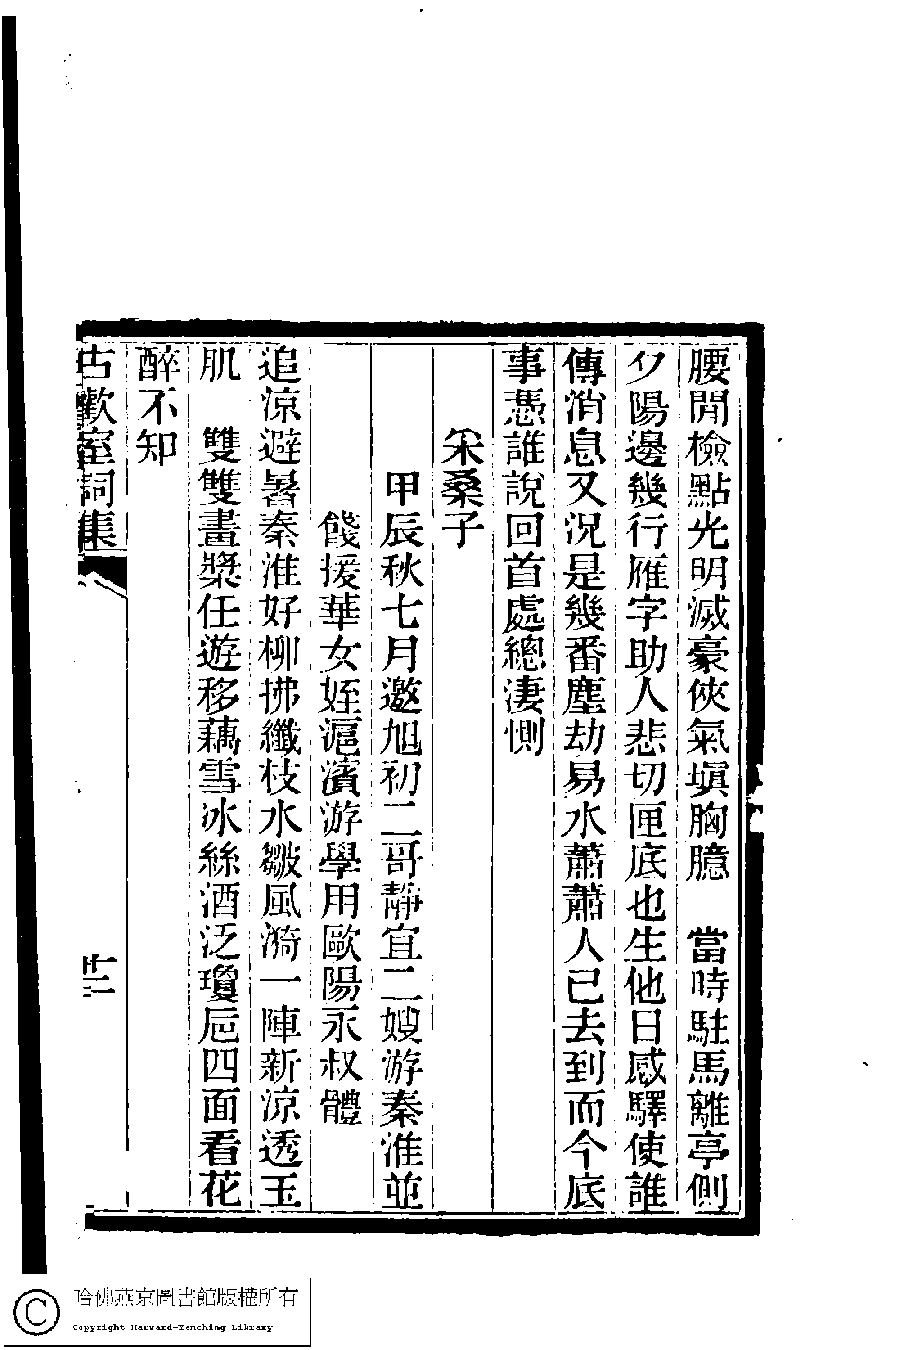 腰閒檢點光明滅豪俠氣塡胸臆　當時駐馬離亭側
夕陽邊幾行雁字助人悲切匣底也生他日感驛使誰
傳消息又況是幾番塵劫易水蕭蕭人已去到而今底
事憑誰說回首處總淒惻
采桑子
甲辰秋七月邀旭初二哥靜宜二嫂游秦淮並
餞援華女姪滬濱游學用歐陽永叔體
追涼避暑秦淮好柳拂纖枝水皺風漪一陣新涼透玉
肌　雙雙畫槳任遊移藕雪冰絲酒泛瓊卮四面看花
醉不知
古歡室詞集
廿二
哈佛燕京圖書館版權所有
Copyright Harvard-Yenching Library